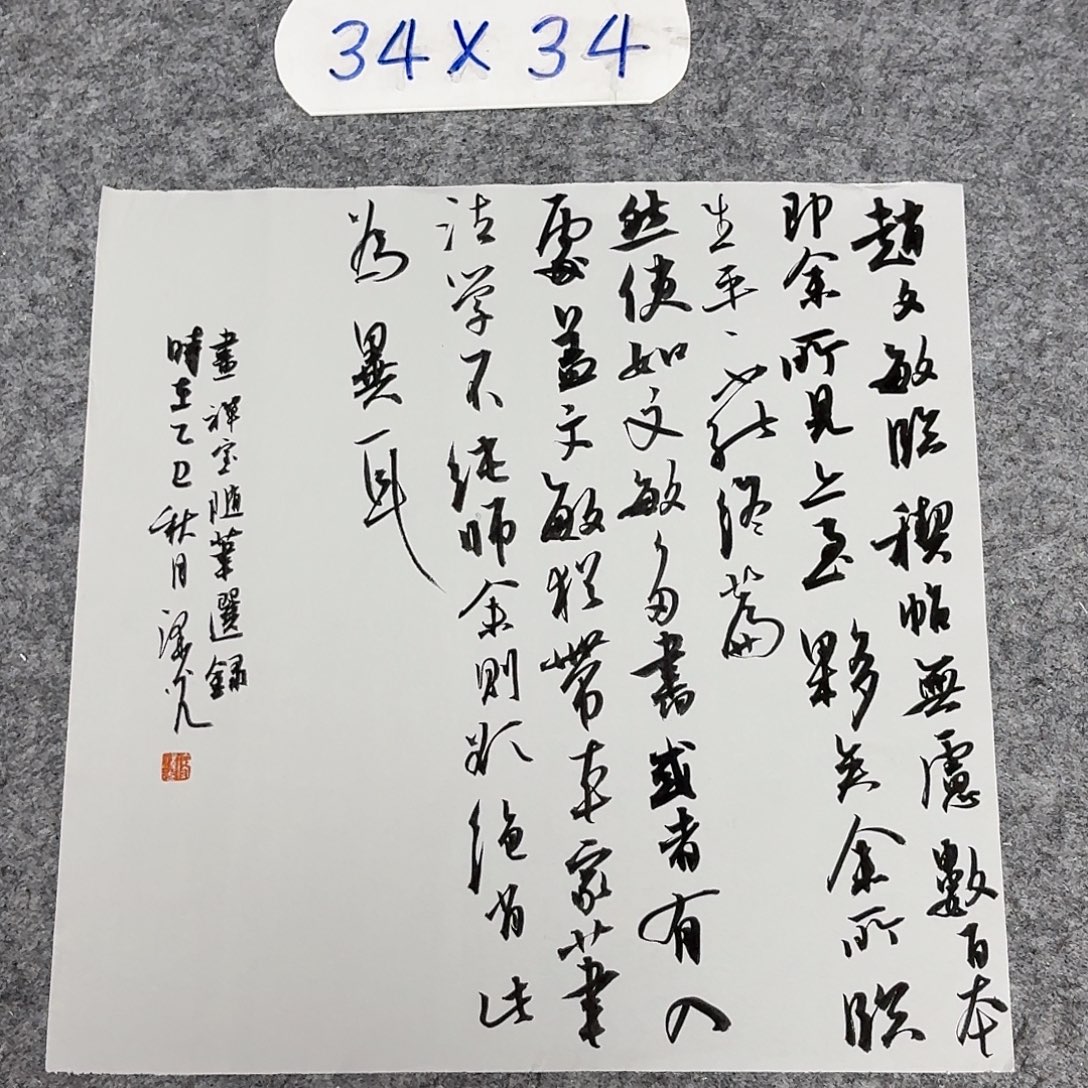 34X34
趙文敏臨禊帖無慮數百本
即余所見亦至夥矣余所臨
生平不能終篇
然使如文敏多書或者有入
處蓋文敏猶帶本家筆
法学不純師余則欲絕肖此
為異耳
畫禪室隨筆選録
時在乙巳秋月